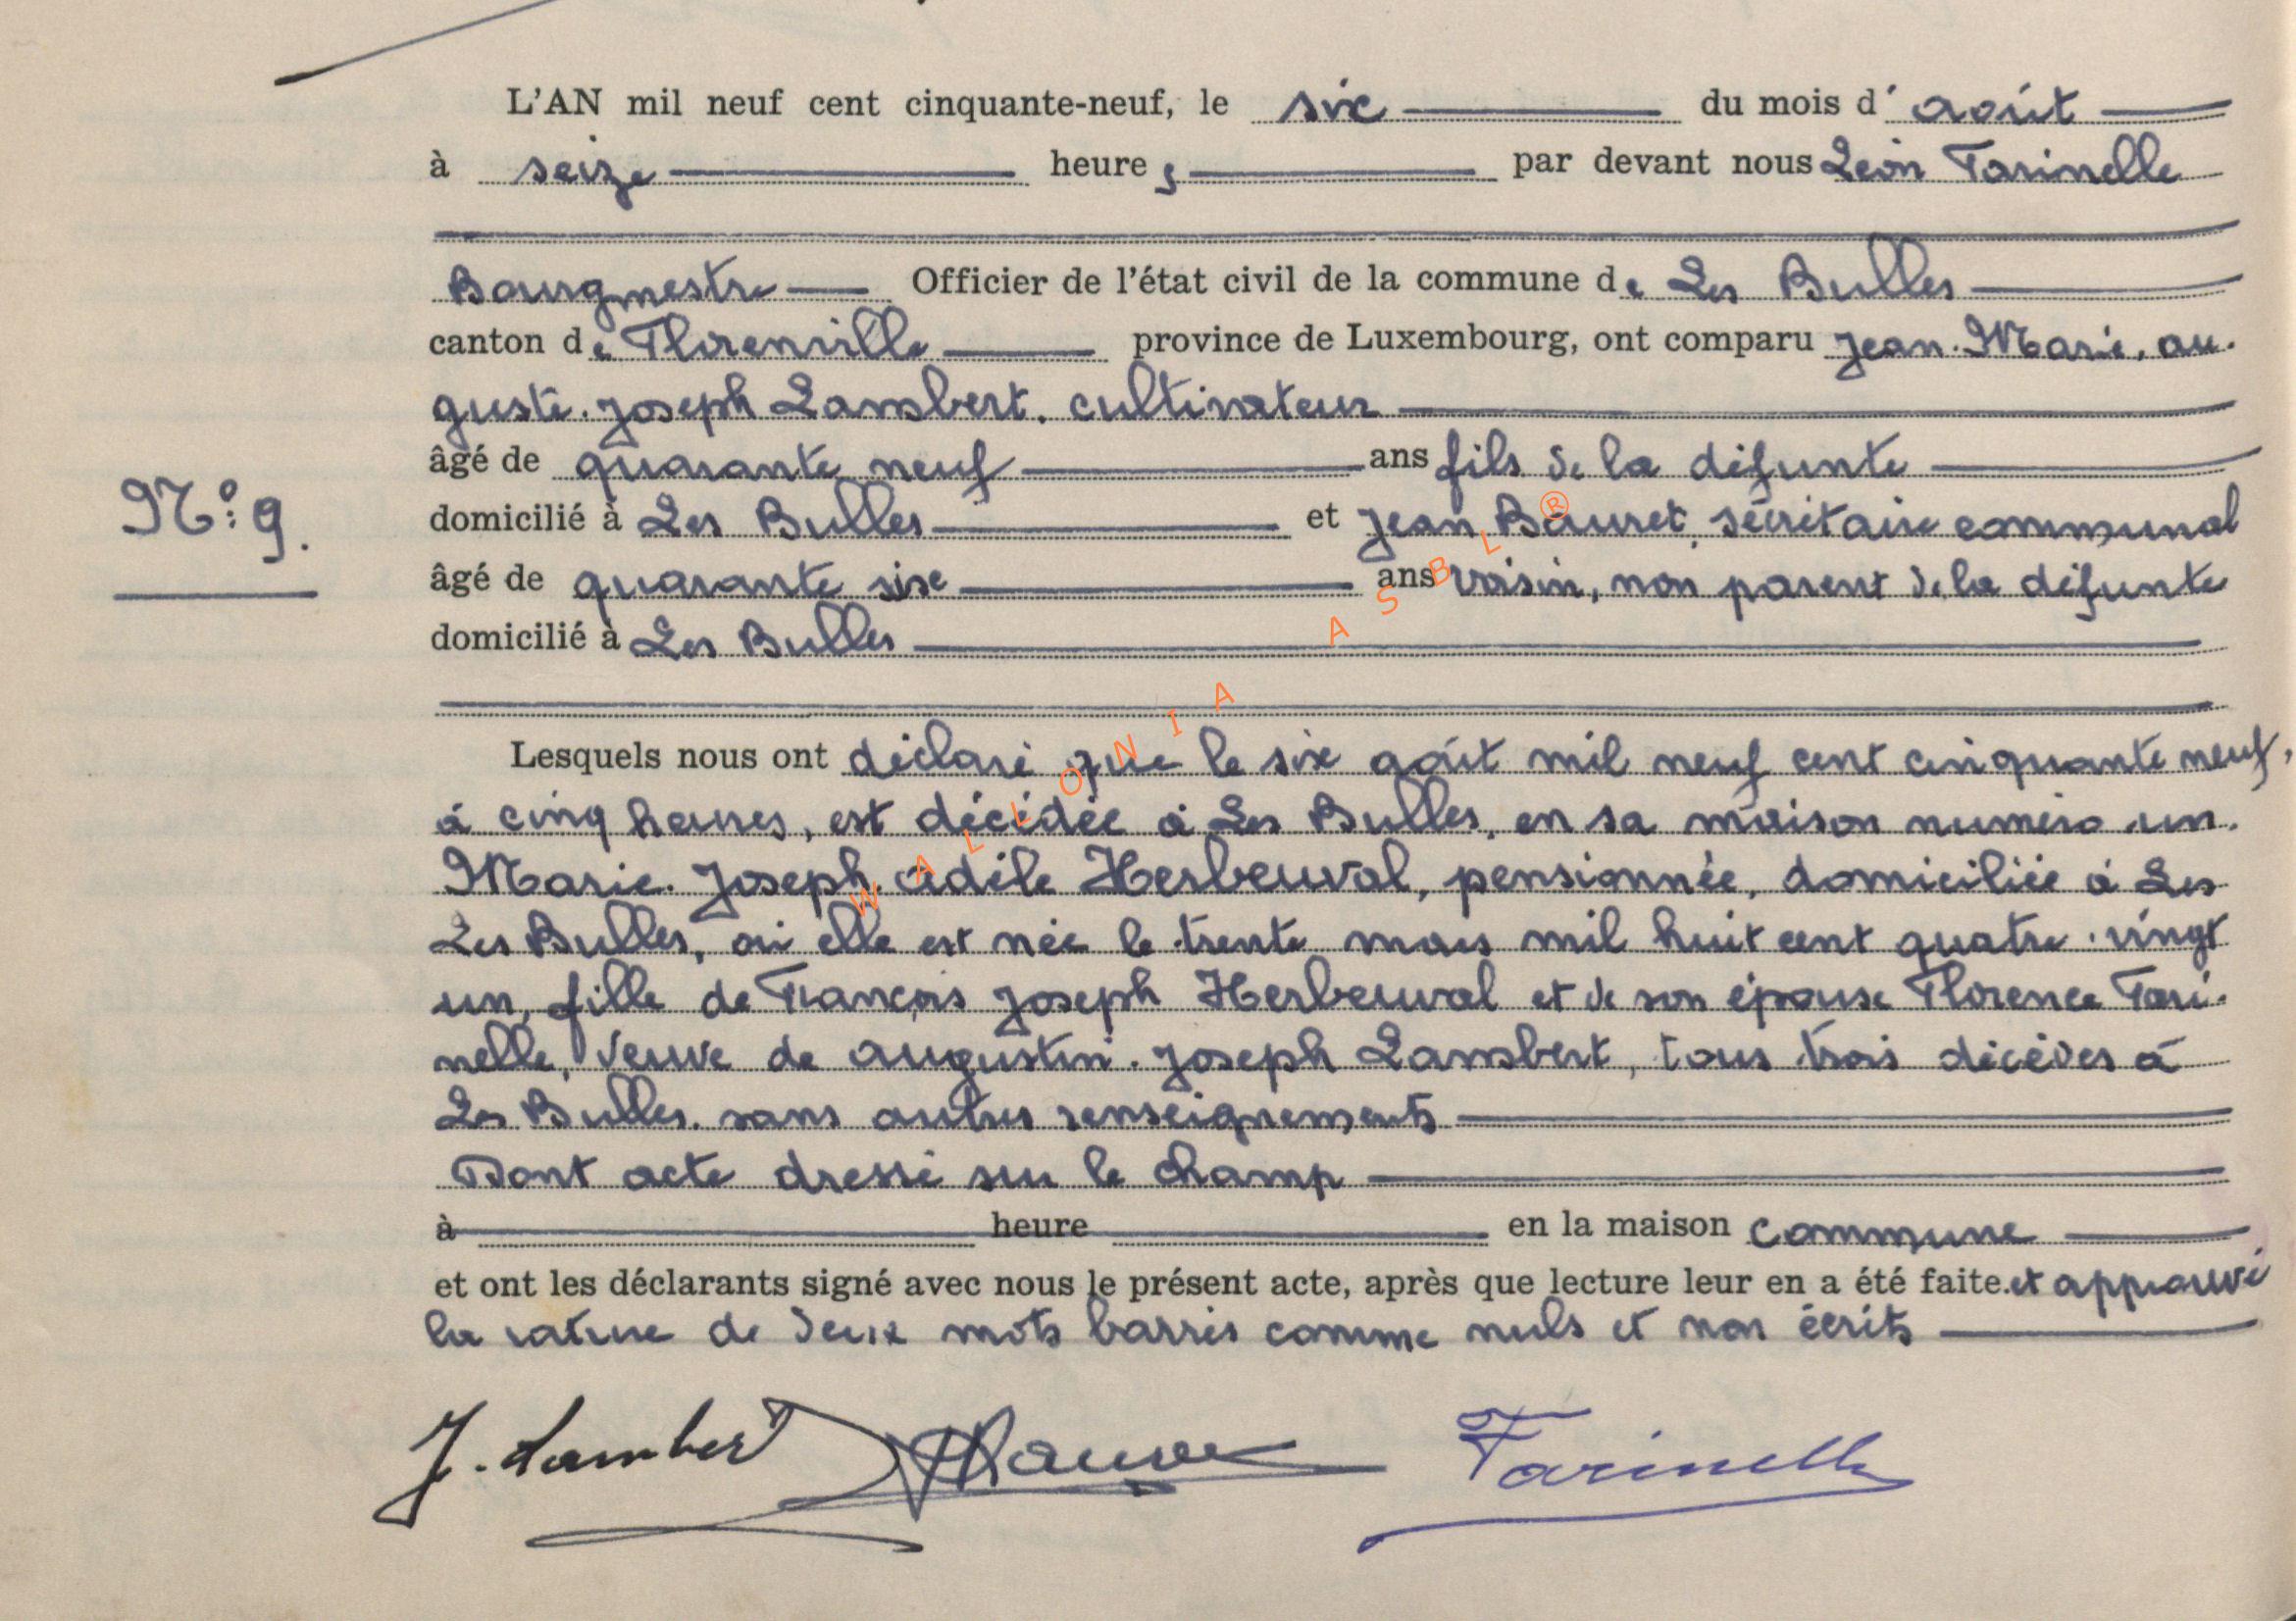 L'AN mil neuf cent cinquante-neuf, le six du mois d'août
à seize heures par devant nous Léon Farinelle
Bourgmestre Officier de l'état civil de la commune de Les Bulles
canton de Florenville province de Luxembourg, ont comparu Jean-Marie, au-
guste-Joseph Lambert, cultivateur
âgé de quarante neuf ans fils de la défunte
N°: 9.
domicilié à Les Bulles et Jean Bauret, secrétaire communal
âgé de quarante six ans voisin, non parent de la défunte
domicilié à Les Bulles
Lesquels nous ont déclaré que le six août mil neuf cent cinquante neuf,
à cinq heures, est décédée à Les Bulles, en sa maison numéro un.
Marie-Joseph adèle Herbeuval, pensionnée, domiciliée à Les
Les Bulles, où elle est née le trente mars mil huit cent quatre-vingt
un, fille de François Joseph Herbeuval et de son épouse Florence Fari-
nelle, veuve de augustin-Joseph Lambert, tous trois décédés à
Les Bulles. sans autres renseignements
Dont acte dressé sur le champ
à heure en la maison commune
et ont les déclarants signé avec nous le présent acte, après que lecture leur en a été faite. et approuvé
la rature de deux mots barrés comme nuls et non écrits
J. Lambert Farinelle
WALLONIA ASBL ®